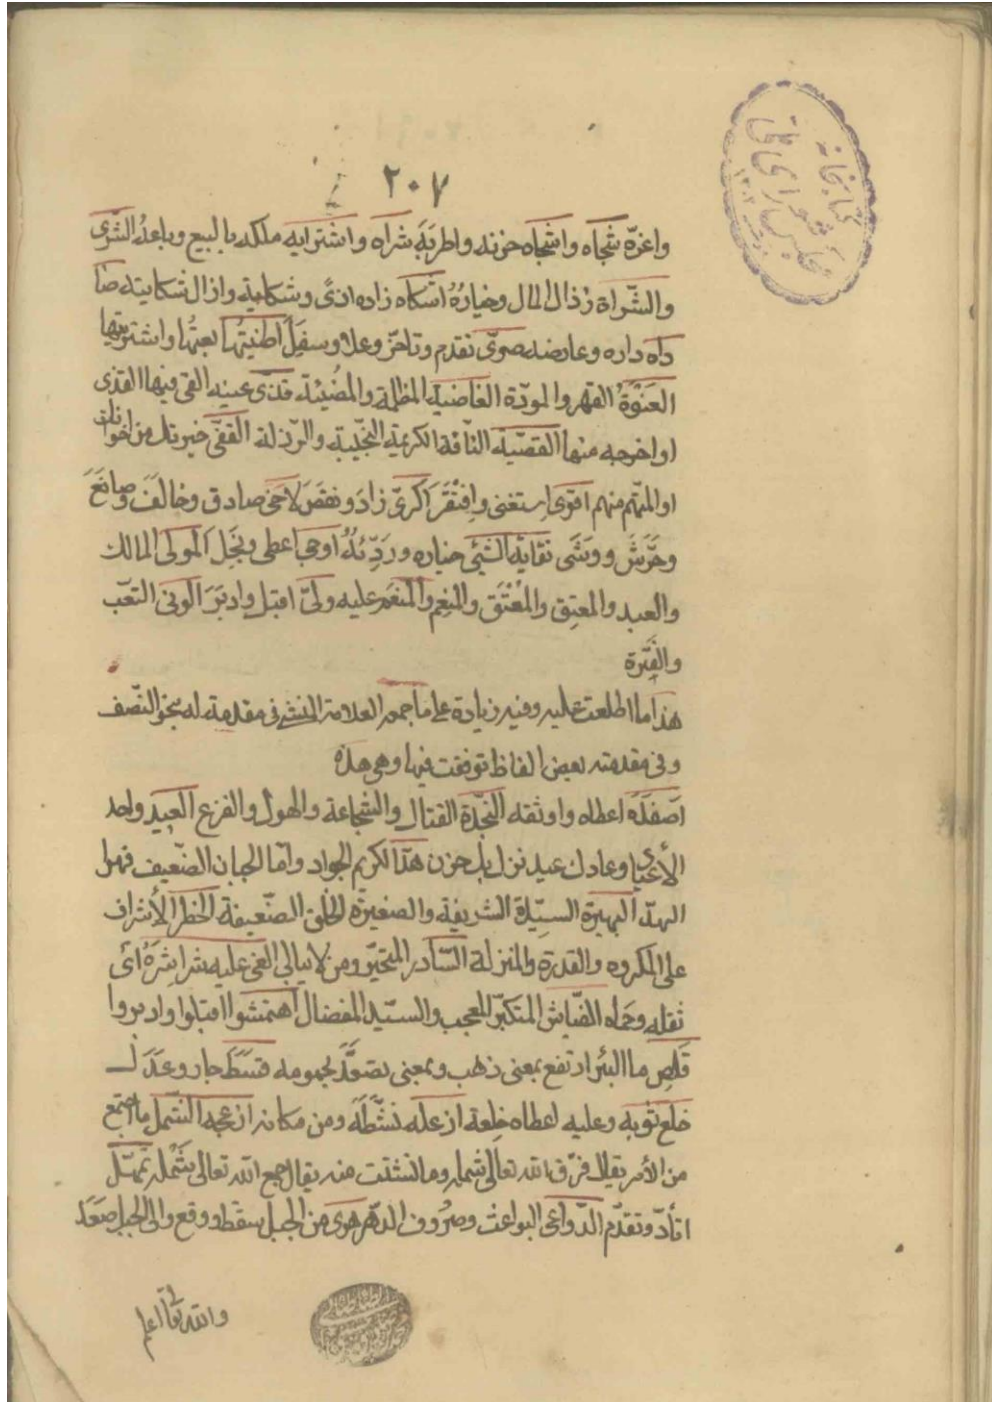 ٢٠٧
واغزّه شجاه واشجاه حزنه واطربة شراه واشتراه ملكه بالبيع وباعه الشرى
والشّراة رُذال المال وخيارهُ اشكاه زاده اذىً وشكاية وازال شكايته صا
داه داره وعارضه صوىّ تقدم وتاخّر وعلا وسفِلَ اطنيتُها بعتُها واشتريتها
العَنْوَةُ القهر والمودّة الغاضية المظلمة والمُضيئة قذىّ عينه القى فيها القذى
او اخرجه منها القصيّة النّاقة الكريمة النجيبة والرّذلة القفىّ خيرتك من اخوانك
او المتّهم منهم اقوى استغنى وافتقَرَ اكرىّ زادَ ونقصَ لاخى صادق وخالفَ وصانعَ
وحَرَّشَ ووشَى نقاية الشيّئ خياره ورَدِّيئُهُ اوجى اعطى وبَخِلَ المَولى المالك
والعبد والمعتِق والمُعْتَق والمنعِم والمُنعَم عليه ولىّ اقبل وادبرَ الونى التعَب
والفَترة
هذا ما اطلعت عليه وفيه زيادة على ما جمعه العلامة المنشى فى مقدمة له بنحو النّصف
وفى مقدمته بعض الفاظ توقفت فيها وهى هذه
اَصفَدَه اعطاه واوثقه النّجدة القتال والشّجاعة والهول والفزع العيد واحد
الأعياد وعادك عيد نزل بك حزن هدّ الكريم الجواد وامّا الجبان الضّعيف فهوا
الهدّ البهيرة السيّدة الشريفة والصغيرة الخلق الضّعيفة الخطر الأشراف
على المكروه والقدرة والمنزلة السّادر المتحيّر ومن لا يبالى القى عليه شراشِرَهُ اى
ثقله وحماه الفيّاش المتكبّر المعجب والسيّد المفضال اهتمشوا اقبلوا وادبروا
قَلَصِ ما البئر ارتفع بمعنى ذهب وبمعنى تصعَّدَ لجمومه قسَطَ جار وعَدَل
خلع ثوبه وعليه اعطاه خِلعة ازعله نشَّطَهُ ومن مكانه ازعجه الشّمل ما اجتمع
من الأمر يقال فرّق الله تعالى شمله وما تشتت منه يقال جمع الله تعالى شَمْله تمهّل
اتأدّ وتقدّم الدّواعى البواعث وصُرُوف الدّهر هوى من الجبل سقط ووقع والى الجبل صَعَدَ
والله تعالى اعلم